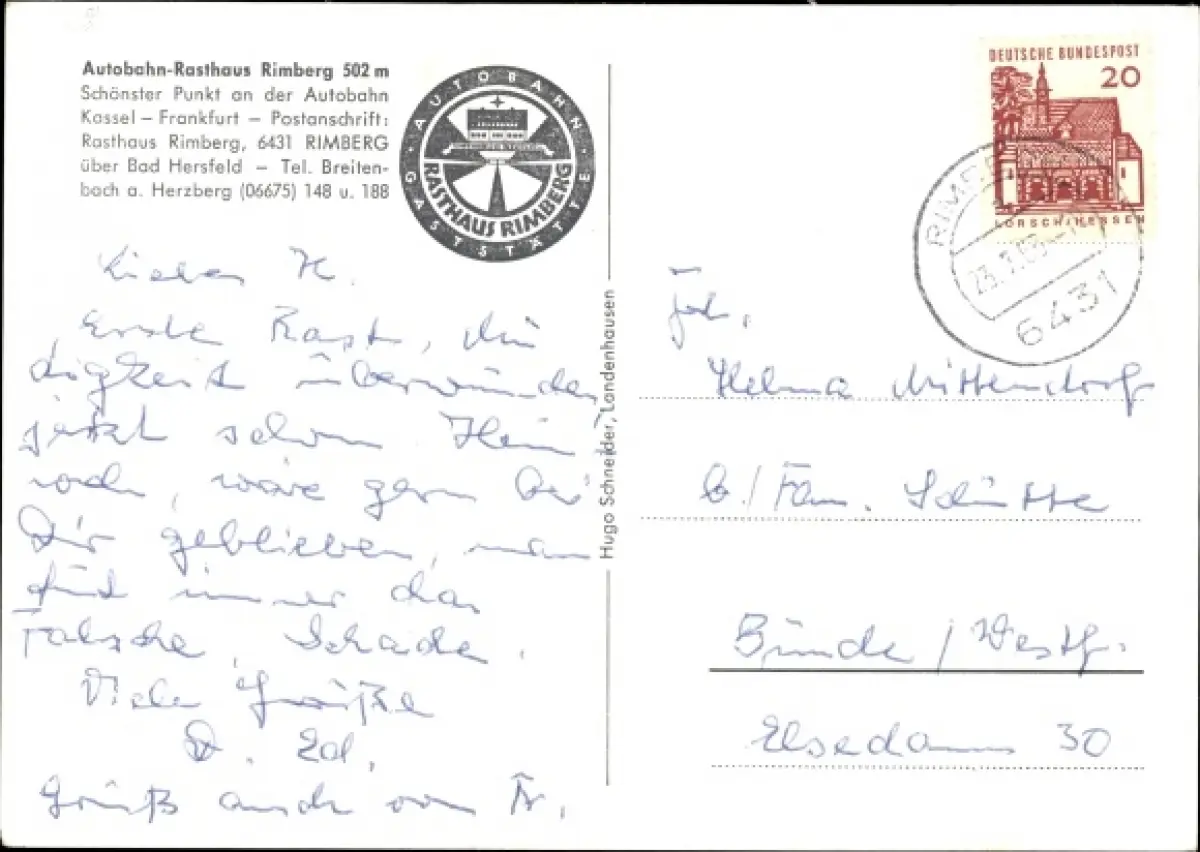 Autobahn-Rasthaus Rimberg 502 m
Schönster Punkt an der Autobahn
Kassel – Frankfurt – Postanschrift:
Rasthaus Rimberg, 6431 RIMBERG
über Bad Hersfeld – Tel. Breiten-
bach a. Herzberg (06675) 148 u. 188
AUTOBAHN
RASTHAUS RIMBERG
GASTSTÄTTE
DEUTSCHE BUNDESPOST
20
LORSCH/HESSEN
6431
Erste Rast, Mü
digkeit überwunden,
jetzt schon Heim
weh, wäre gern bei
Dir geblieben, man
tut immer das
Falsche, Schade.
Viele Grüße
D. Ed.
Grüß auch von Tr.
Hugo Schneider, Landenhausen
Helma Mittendorf
b/Fam. Schütte
Bünde/Westf.
Elsedamm 30